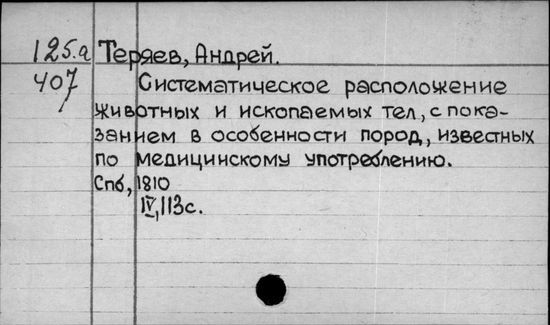 125.а Теряев, Андрей.
407 Систематическое расположение
животных и ископаемых тел, с пока-
занием в особенности пород, известных
по медицинскому употреблению.
Спб, 1810
IV, 113с.